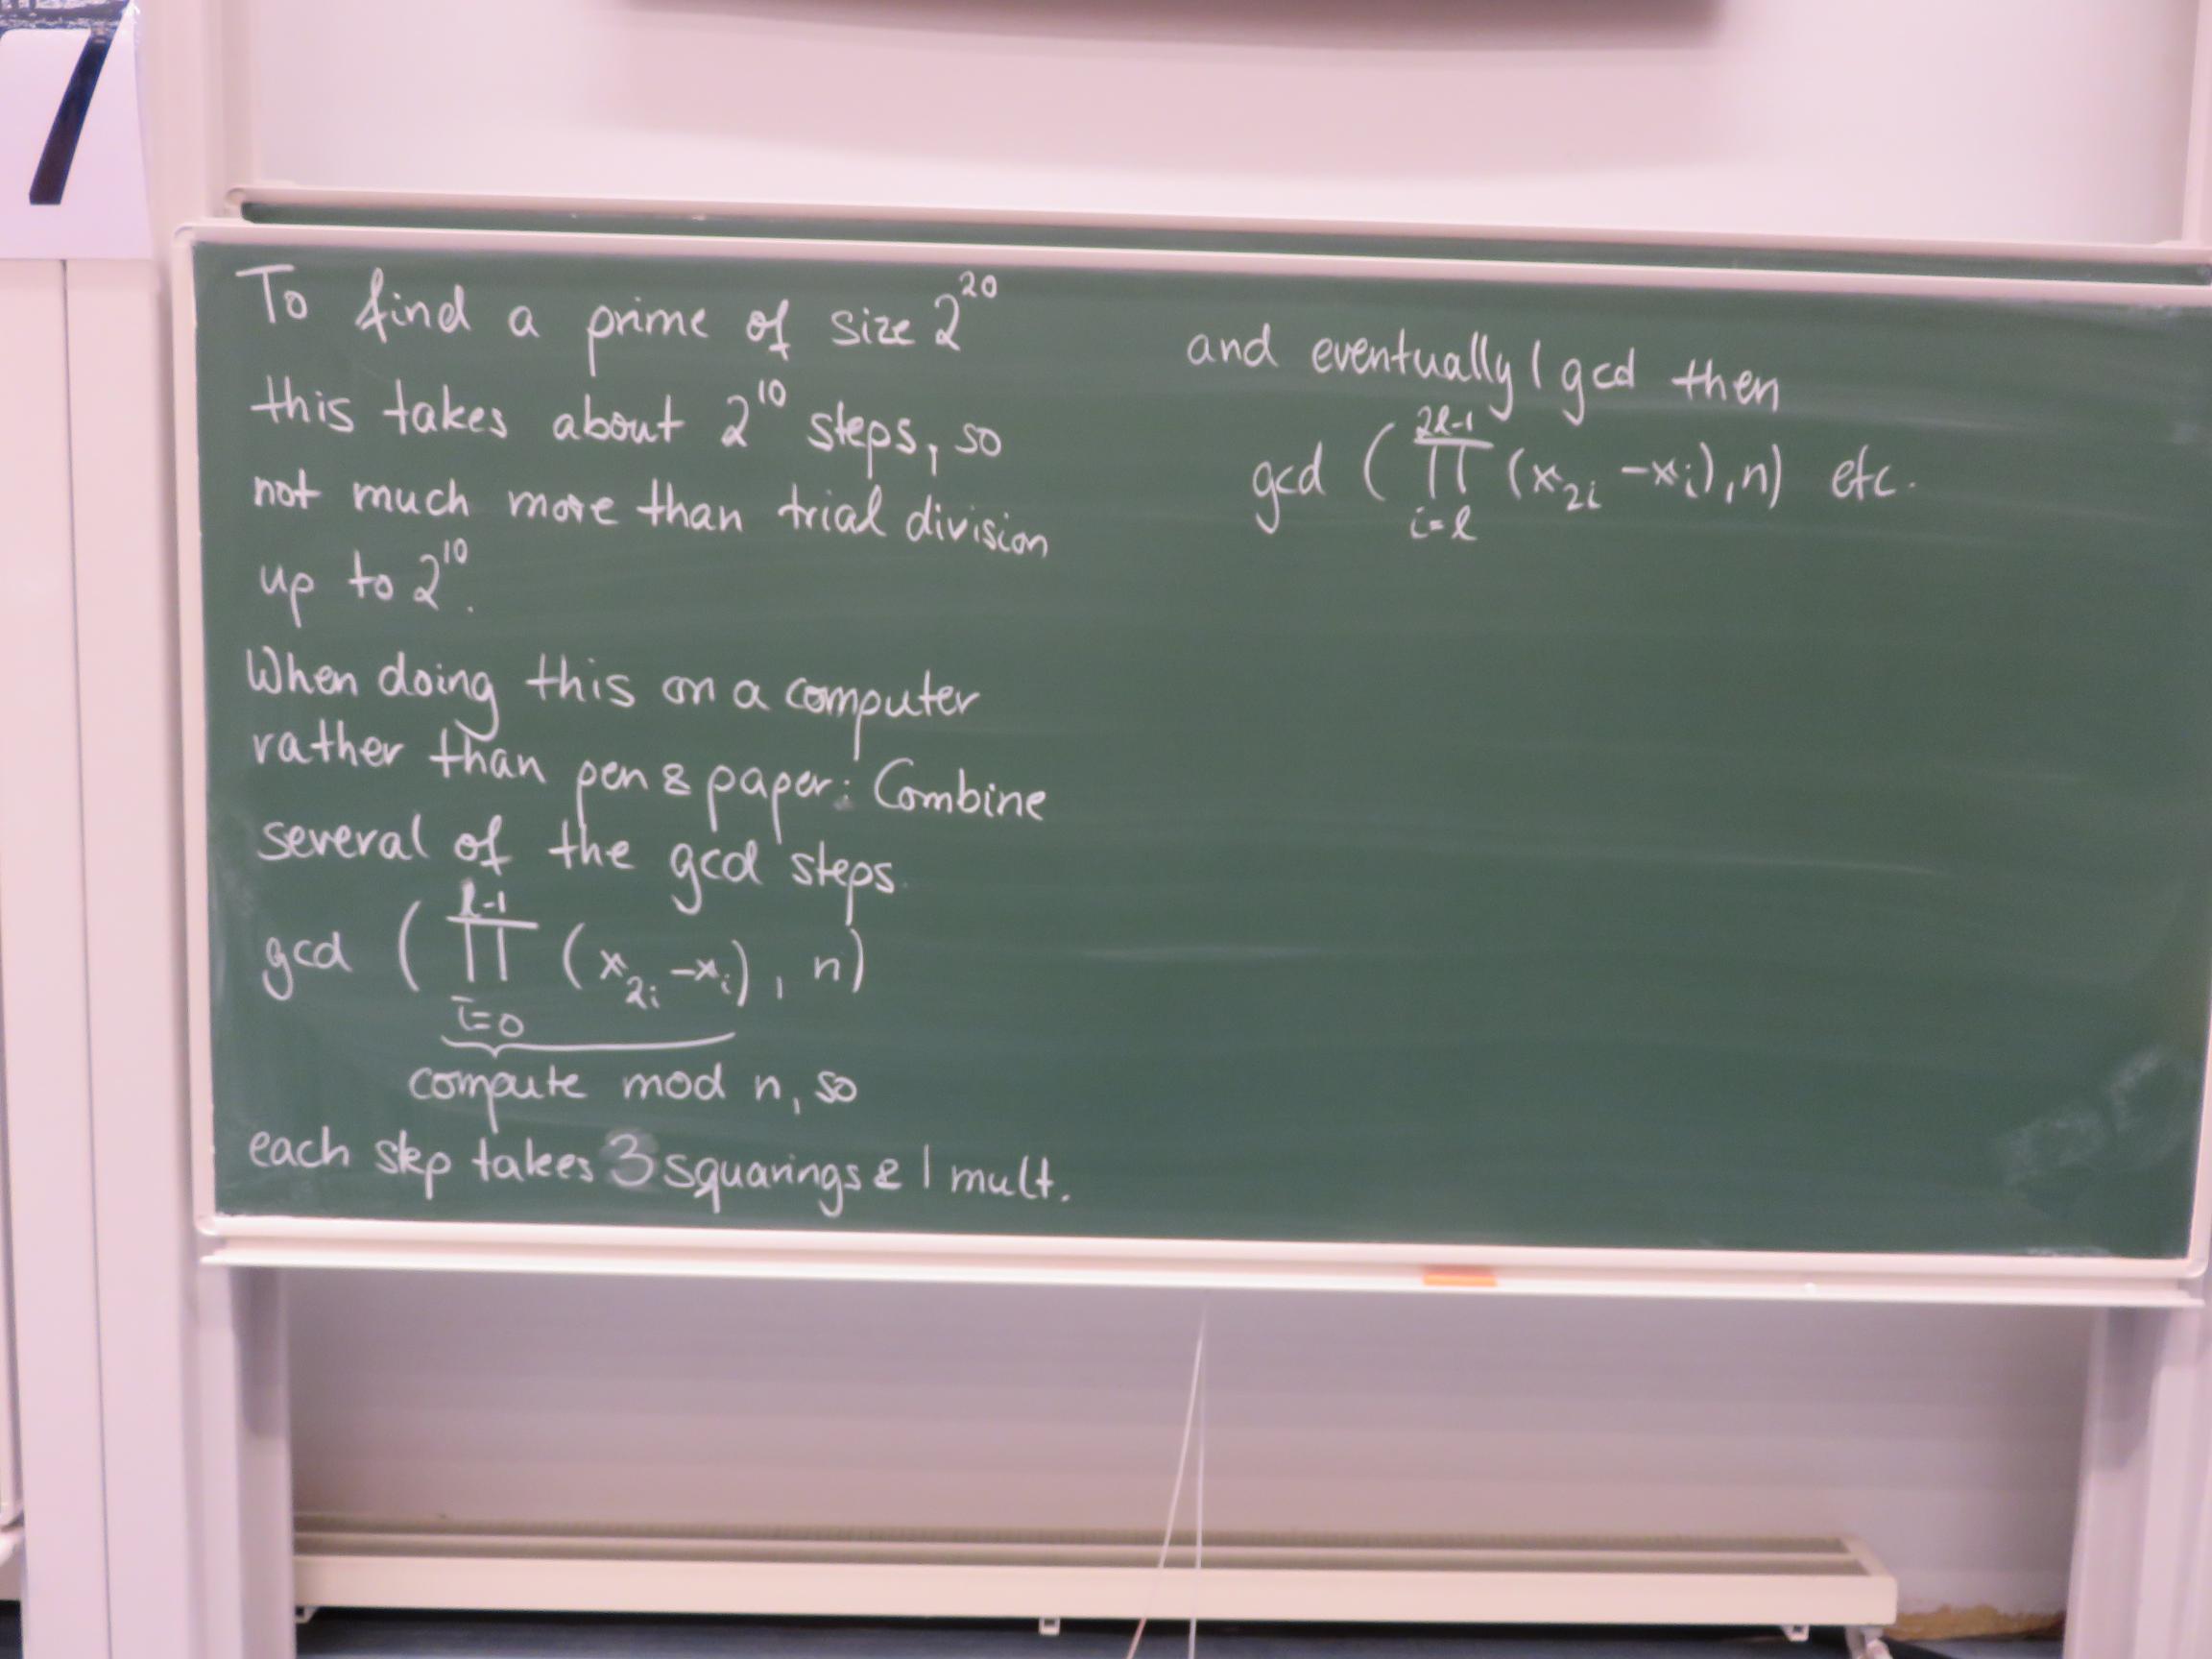 7
To find a prime of size 2^20
this takes about 2^10 steps, so
not much more than trial division
up to 2^10.
When doing this on a computer
rather than pen & paper: Combine
several of the gcd steps.
gcd ( ∏_{i=0}^{l-1} (x_{2i} - x_i), n)
compute mod n, so
each step takes 3 squarings & 1 mult.
and eventually 1 gcd then
gcd ( ∏_{i=l}^{2l-1} (x_{2i} - x_i), n) etc.